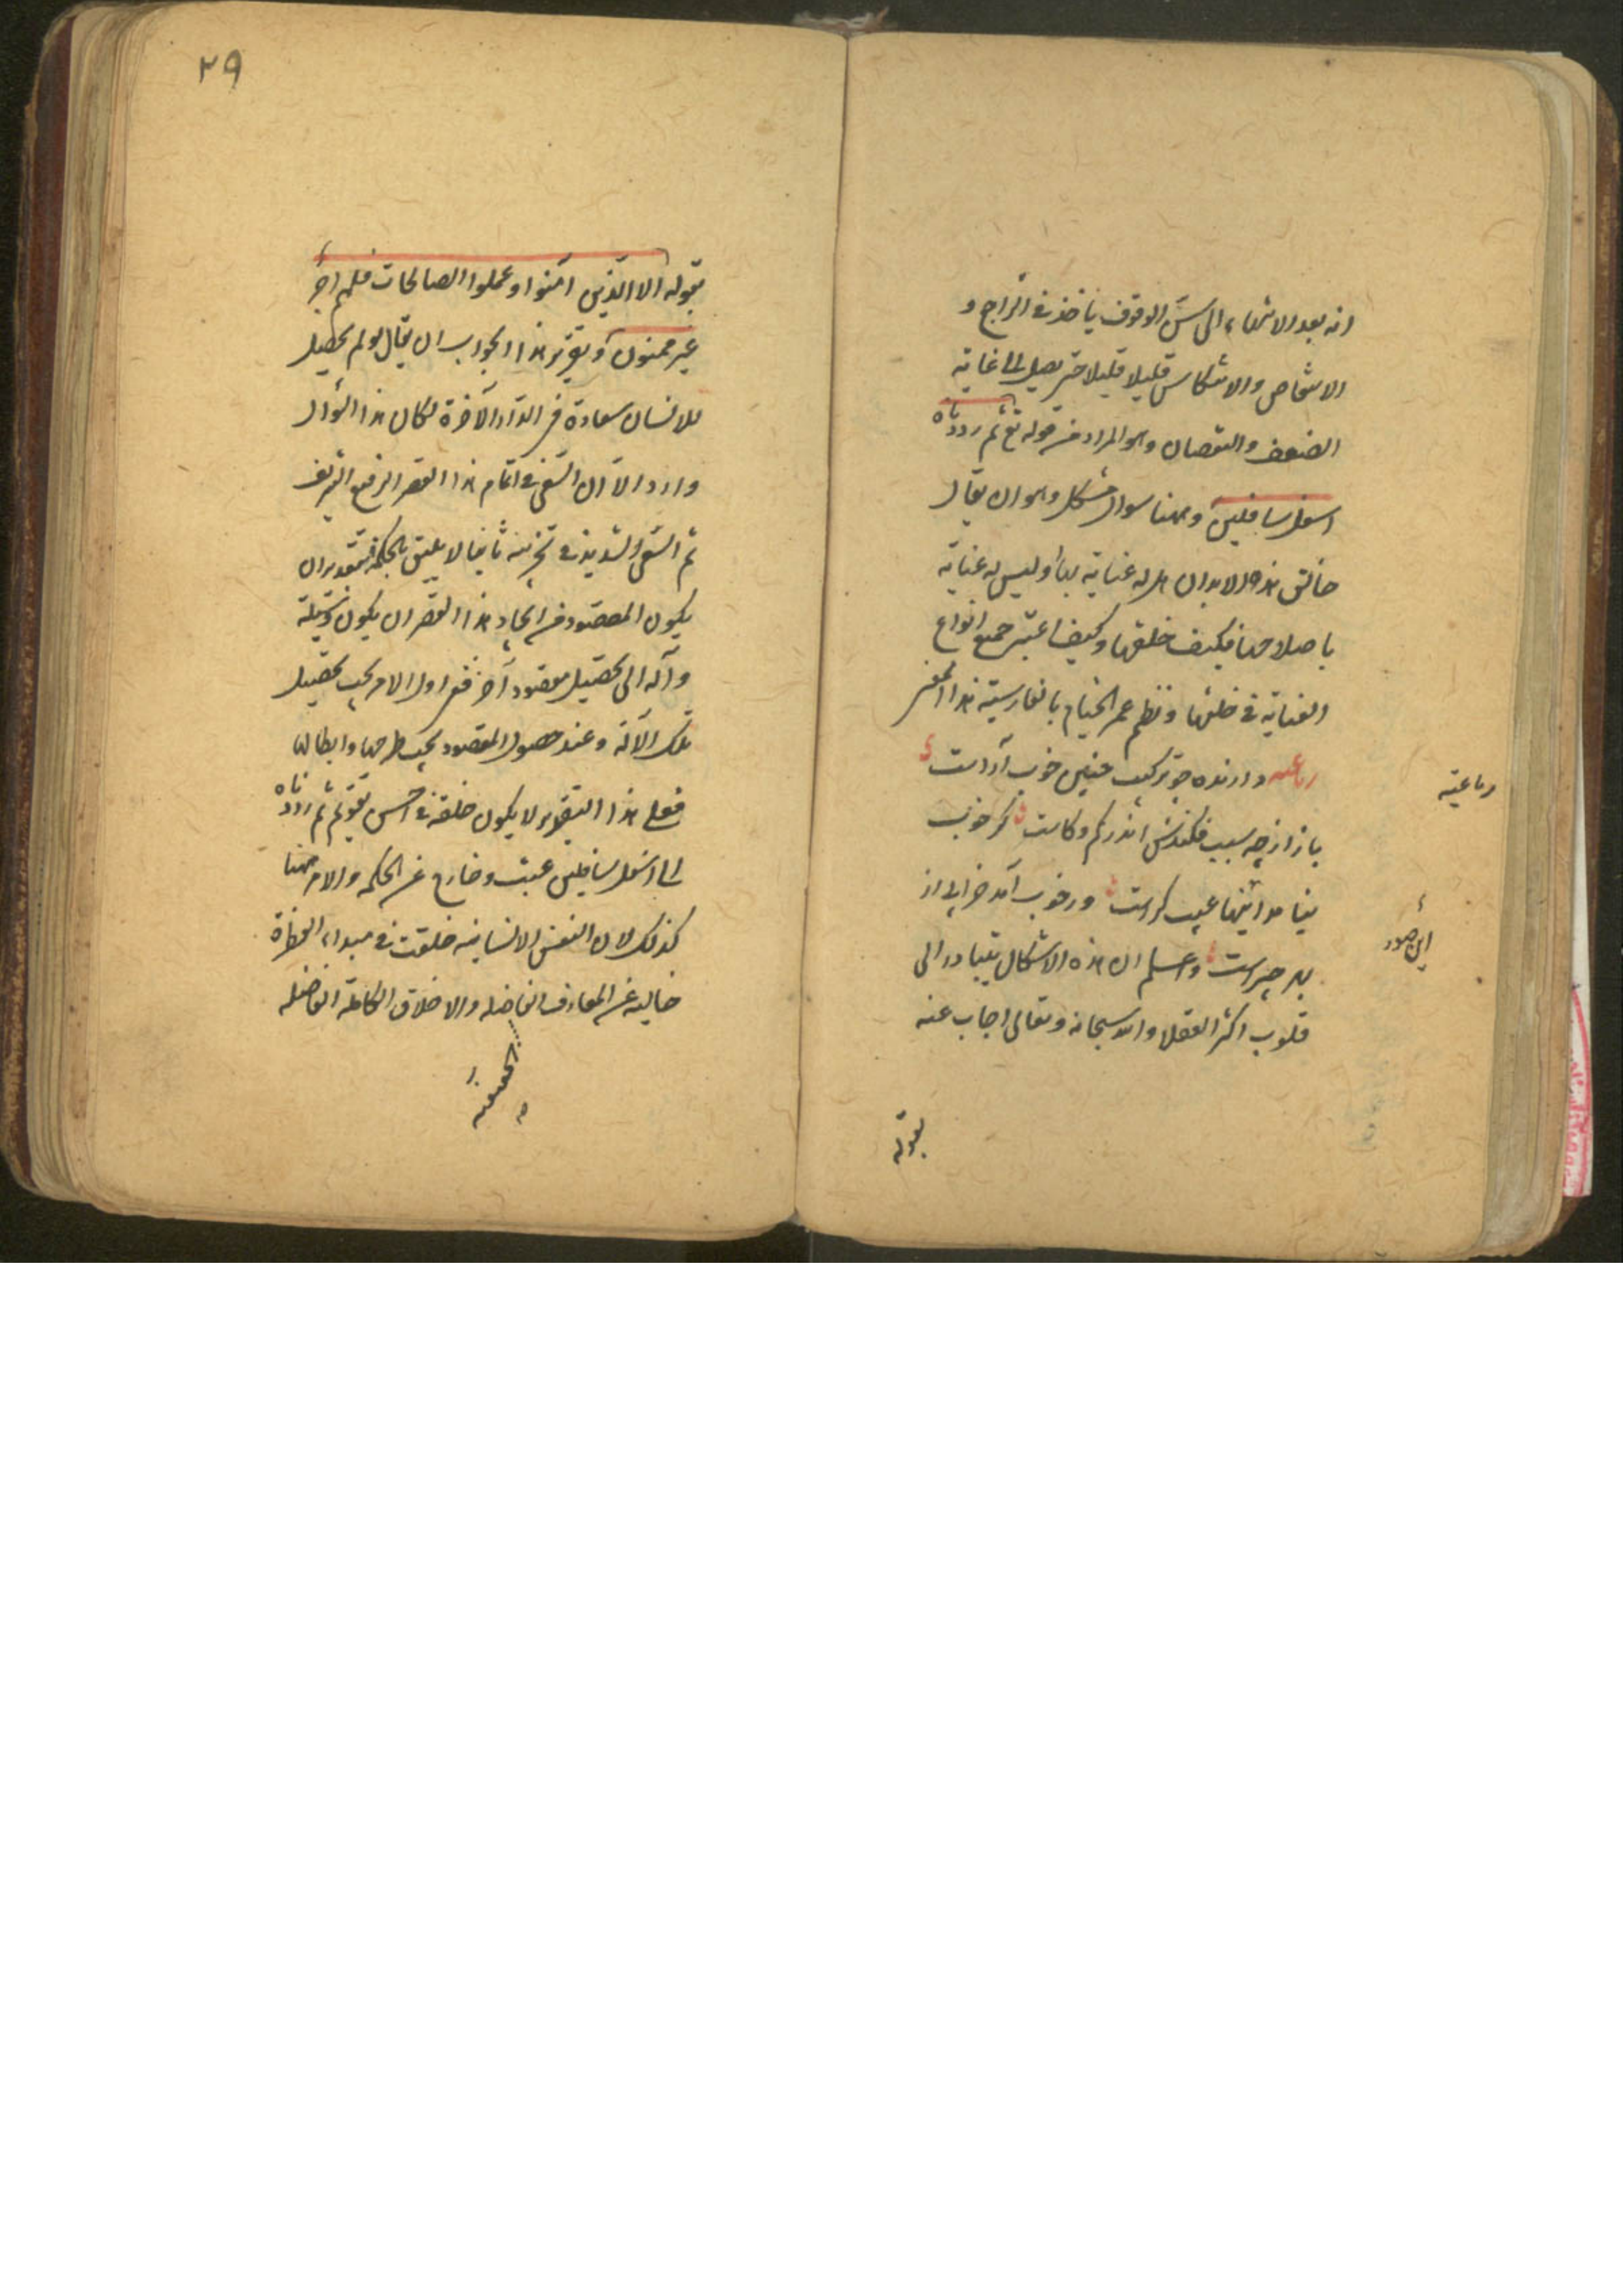 انه بعد الانتهاء الى سن الوقوف ياخذ فى التراجع و
الانتقاص والانتكاس قليلا قليلا حتى يصل الى غاية
الضعف والنقصان وهو المراد من قوله تع ثم رددناه
اسفل سافلين وههنا سوال مشكل وهو ان يقال
خالق هذه الابدان هل له عناية بها او ليس له عناية
باصلاحها فكيف خلقها وكيف اعتبر جميع انواع
العناية فى خلقها ونظم عمر الخيام بالفارسية هذا المعنى
رباعيه دارنده چو تركيب چنين خوب آراست
باز از چه سبب فكندش اندر كم وكاست گر خوب
نيامد اينها عيب كراست ور خوب آمد خرابى از
بهر چراست واعلم ان هذه الاشكال يتبادر الى
قلوب اكثر العقلا والله سبحانه وتعالى اجاب عنه
بقوله
رباعية
اين صور
٢٩
بقوله الا الذين آمنوا وعملوا الصالحات فلهم اجر
غير ممنون وتقرير هذا الجواب ان يقال لو لم يحصل
للانسان سعادة فى الدار الآخرة لكان هذا السوال
واردا لان السعى فى اتمام هذا القصر الرفيع الشريف
ثم السعى الشديد فى تخريبه ثانيا لا يليق بالحكمة فبتقدير ان
يكون المقصود من ايجاد هذا القصر ان يكون وسيلة
وآلة الى تحصيل مقصود آخر ففى اول الامر يجب تحصيل
تلك الآلة وعند حصول المقصود يجب طرحها وابطالها
فعلى هذا التقدير لا يكون خلقه فى احسن تقويم ثم رددناه
الى اسفل سافلين عبث وخارج عن الحكمة والامر ههنا
كذلك لان النفس الانسانيه خلقت فى مبداء الفطرة
خاليه عن المعارف الفاضله والاخلاق الكاملة الفاضله